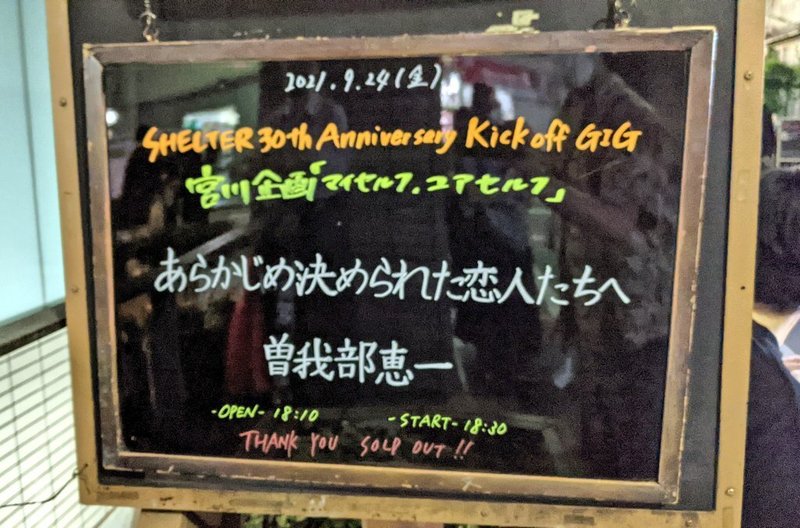 2021.9.24(金)
SHELTER 30th Anniversary Kick off GIG
宮川企画「マイセルフ,ユアセルフ」
あらかじめ決められた恋人たちへ
曽我部恵一
-OPEN- 18:10 -START- 18:30
THANK YOU SOLD OUT!!